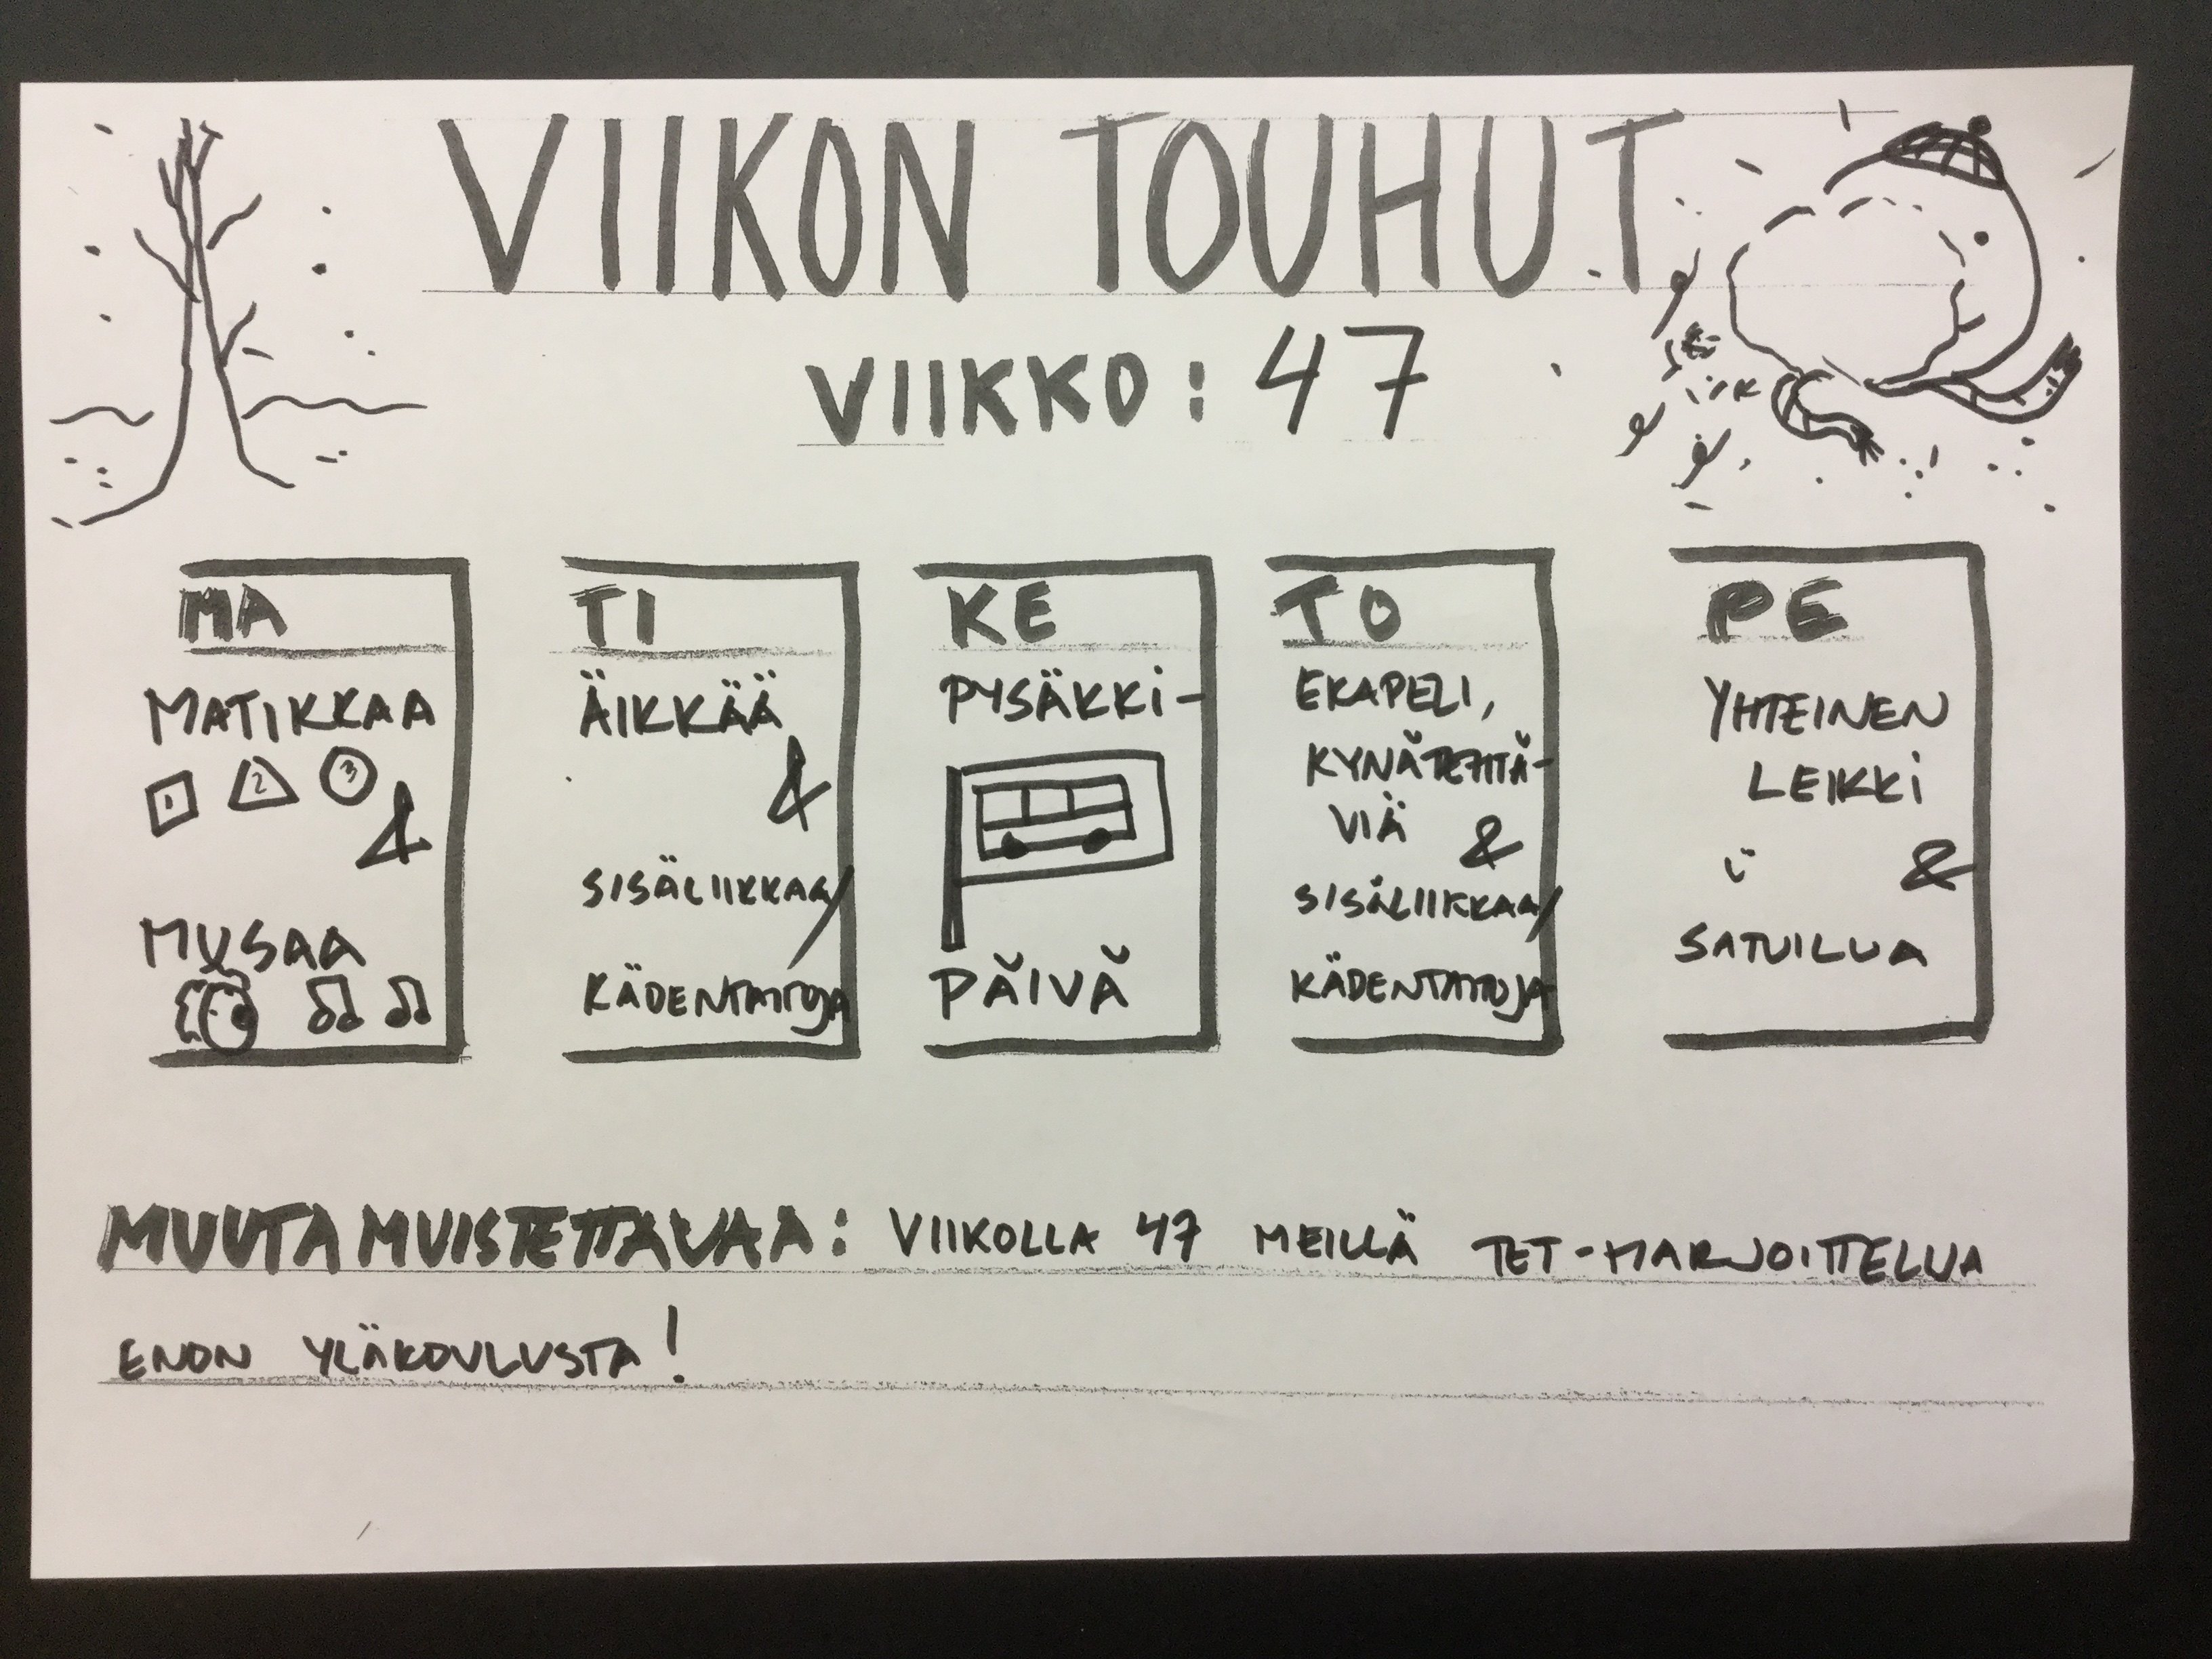 VIIKON TOUHUT
VIIKKO: 47
MA
MATIKKAA
1 2 3
&
MUSAA
TI
ÄIKKÄÄ
&
SISÄLIIKKAA/
KÄDENTAITOJA
KE
PYSÄKKI-
PÄIVÄ
TO
EKAPELI,
KYNÄTEHTÄ-
VIÄ &
SISÄLIIKKAA/
KÄDENTAITOJA
PE
YHTEINEN
LEIKKI
&
SATUILUA
MUUTA MUISTETTAVAA: VIIKOLLA 47 MEILLÄ TET-HARJOITTELUA
ENON YLÄKOULUSTA!